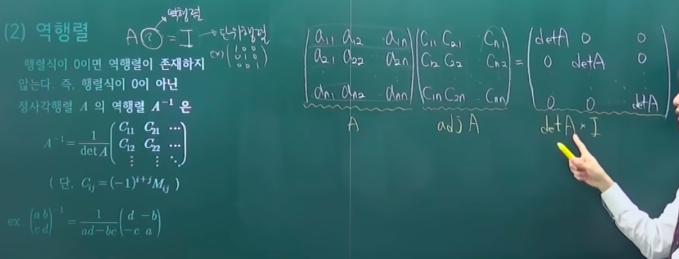 (2) 역행렬
역행렬
A ? = I → 단위행렬
ex) (1 0 0
0 1 0
0 0 1)
행렬식이 0이면 역행렬이 존재하지
않는다. 즉, 행렬식이 0이 아닌
정사각행렬 A 의 역행렬 A⁻¹ 은
A⁻¹ = 1/detA (C₁₁ C₂₁ ⋯
C₁₂ C₂₂ ⋯
⋮ ⋮ ⋱)
( 단, Cᵢⱼ = (-1)ⁱ⁺ʲMᵢⱼ )
ex. (a b
c d)⁻¹ = 1/(ad-bc) (d -b
-c a)
(a₁₁ a₁₂ a₁ₙ
a₂₁ a₂₂ a₂ₙ
aₙ₁ aₙ₂ aₙₙ)
A
(C₁₁ C₂₁ Cₙ₁
C₁₂ C₂₂ Cₙ₂
C₁ₙ C₂ₙ Cₙₙ)
adj A
= (detA 0 0
0 detA 0
0 0 detA)
detA * I